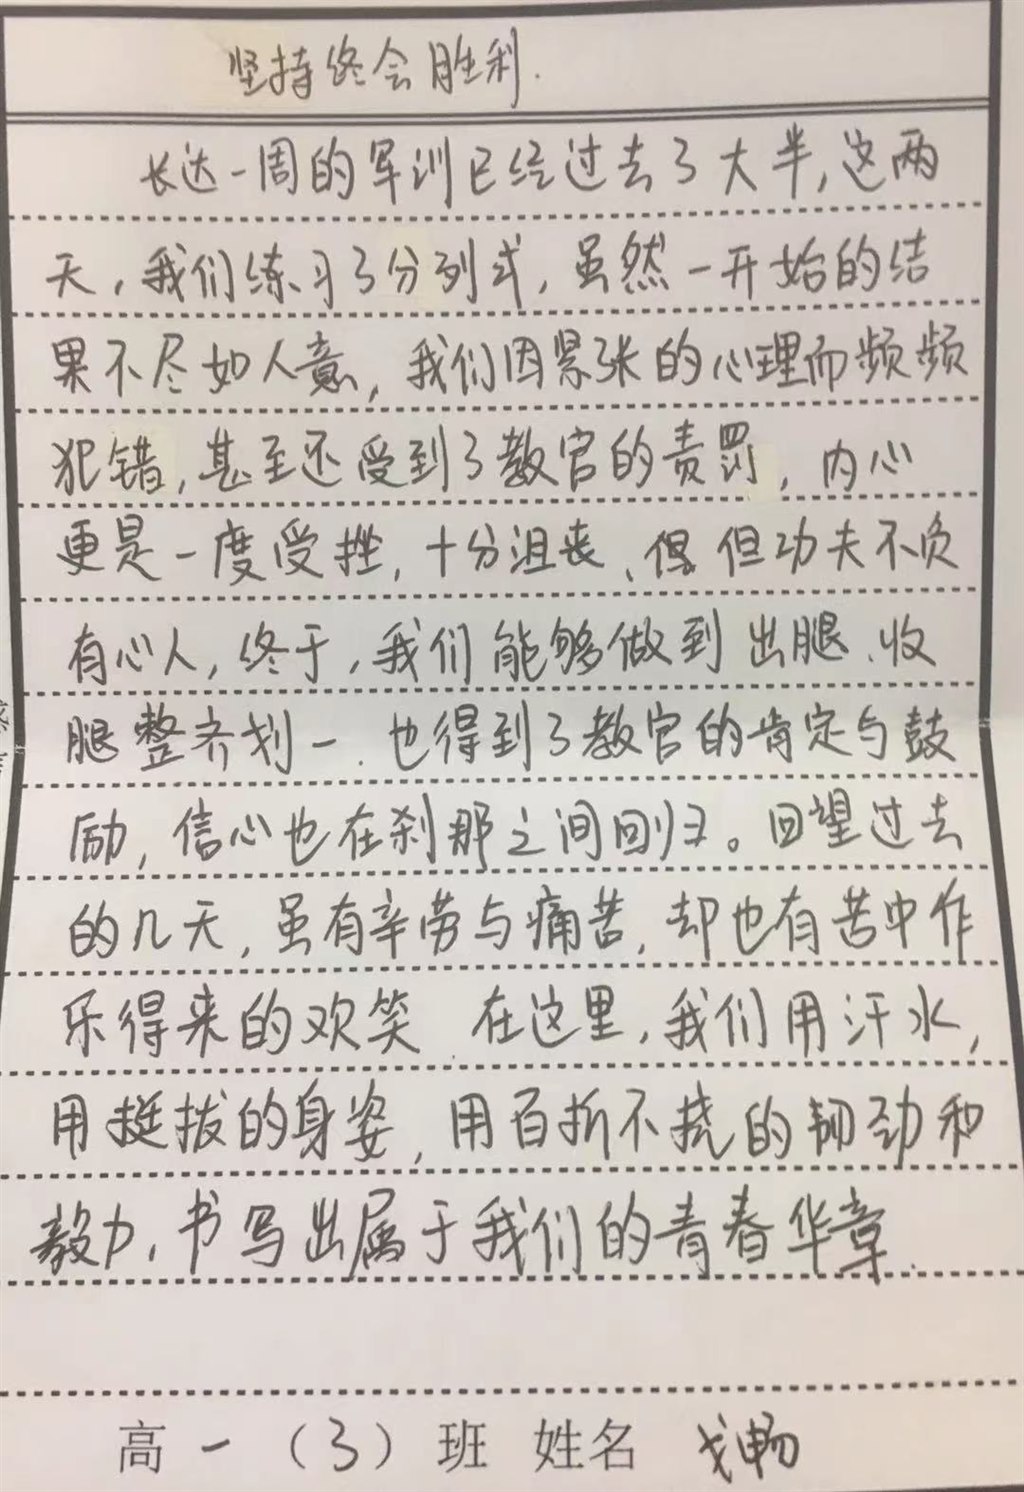 坚持终会胜利.
长达一周的军训已经过去了大半,这两
天,我们练习了分列式,虽然一开始的结
果不尽如人意,我们因紧张的心理而频频
犯错,甚至还受到了教官的责罚,内心
更是一度受挫,十分沮丧、但功夫不负
有心人,终于,我们能够做到出腿、收
腿整齐划一.也得到了教官的肯定与鼓
励,信心也在刹那之间回归。回望过去
的几天,虽有辛劳与痛苦,却也有苦中作
乐得来的欢笑.在这里,我们用汗水,
用挺拔的身姿,用百折不挠的韧劲和
毅力,书写出属于我们的青春华章.
高一(3)班 姓名 戈畅